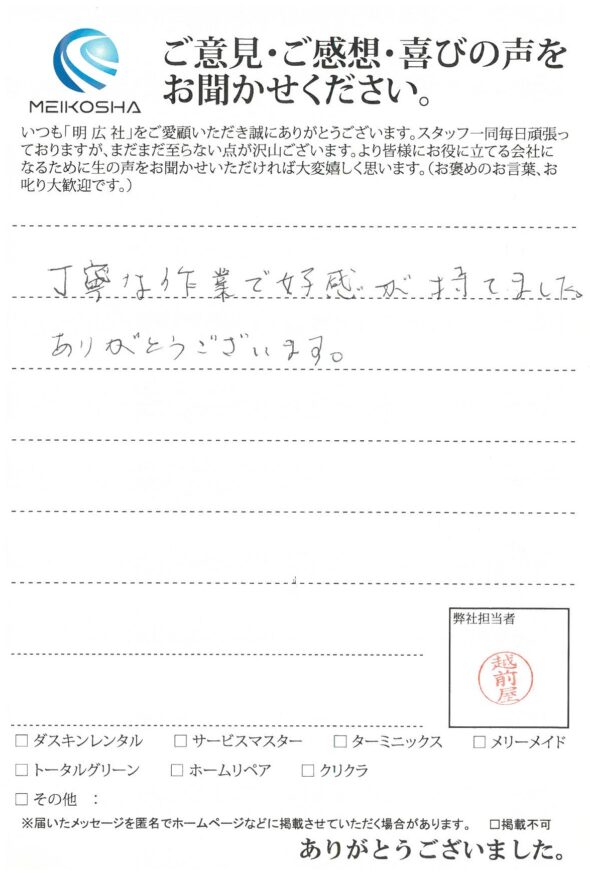 MEIKOSHA
ご意見・ご感想・喜びの声を
お聞かせください。
いつも「明広社」をご愛顧いただき誠にありがとうございます。スタッフ一同毎日頑張っ
ておりますが、まだまだ至らない点が沢山ございます。より皆様にお役に立てる会社に
なるために生の声をお聞かせいただければ大変嬉しく思います。（お褒めのお言葉、お
叱り大歓迎です。）
丁寧な作業で好感が持てました。
ありがとうございます。
弊社担当者
越前屋
□ ダスキンレンタル □ サービスマスター □ ターミニックス □ メリーメイド
□ トータルグリーン □ ホームリペア □ クリクラ
□ その他 ：
※届いたメッセージを匿名でホームページなどに掲載させていただく場合があります。 □掲載不可
ありがとうございました。